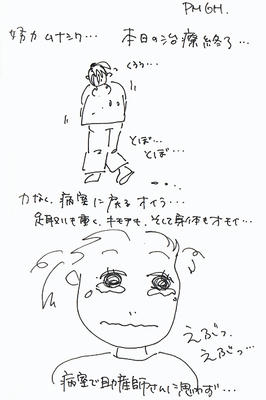 PMGH.
努力ムナシク… 本日の治療終了…
くるっ…
とぼ…
とぼ…
力なく、病室に戻るオイラ…
足取りも重く、キモチも、そして身体もオモイ…
えぶっ、
えぶっ…
病室で助産師さんに思わず…